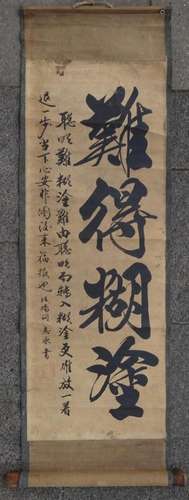 難得糊塗
聰明難糊塗難由聰明而轉入糊塗更難放一着
退一步當下心安非圖後來福報也